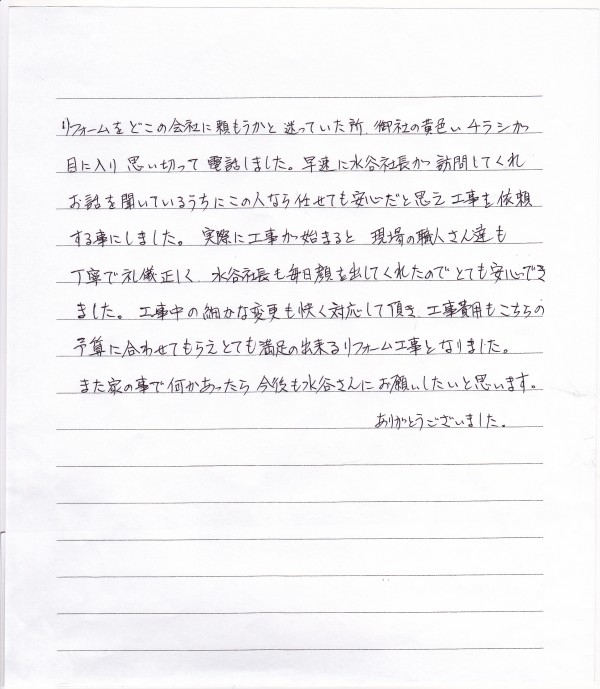 リフォームをどこの会社に頼もうかと迷っていた所、御社の黄色いチラシが
目に入り思い切って電話しました。早速に水谷社長が訪問してくれ
お話を聞いているうちにこの人なら任せても安心だと思え工事を依頼
する事にしました。実際に工事が始まると現場の職人さん達も
丁寧で礼儀正しく、水谷社長も毎日顔を出してくれたのでとても安心でき
ました。工事中の細かな変更も快く対応して頂き、工事費用もこちらの
予算に合わせてもらえとても満足の出来るリフォーム工事となりました。
また家の事で何かあったら今後も水谷さんにお願いしたいと思います。
ありがとうございました。